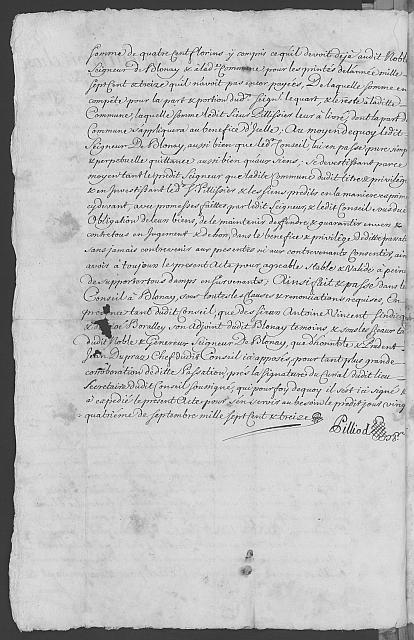 somme de quatre cent florins ÿ compris ce quil devoit déja audit Noble
Seigneur de Blonay & à lad. Commune pour les printés de lannée mille
sept cent & treize quil navoit pas encor payées, De laquelle somme en
compéte pour la part & portion dud. Seigr. le quart, & le reste à laditte
Commune, laquelle somme ledit Sieur Pillissier leur a livré, dont la part de
Commune s'appliquera au benefice d'Icelle; Au moyen dequoy ledit
Seigneur de Blonay, aussi bien que led. Conseil, luy en passe pure, simple
& perpetuelle quittance aussi bien quaux siens; Se devestissant par ce
moyen tant le prédit Seigneur que ladite Commune dudit etre & privilége
& en Investissant led. Sr. Pillissier & les siens prédits en la maniere exprimée
cÿ devant, avec promesses faittes par ledit Seigneur, & ledit Conseil sous due
Obligation de leur biens, de le maintenir, defendre, & guarantir envers &
contre tous en Jugement & dehors, dans le benefice & privilége de ditte
sans jamais contrevenir aux presentes ni aux contrevenants consentir, ains
avoir à toujours le present Acte pour agreable stable & valide à peine
de supporter tous damps survenants; Ainsi fait & passé dans le
Conseil à Blonay, sous toutes les clauses & renonciations requises, En
presence tant dudit Conseil, que des sieurs Antoine Vincent Sindicq
& de Baralley son Adjoint dudit Blonay temoins & sous les sceaux tant
dudit Noble & Genereux Seigneur de Blonay, que dhonnete & Prudent
Jean Dupraz Chef dudit Conseil cÿ apposés, pour tant plus grande
corroboration de ditte Passation, prés la signature du Curial dudit lieu
Secretaire dudit Conseil sousigné, qui pour foy dequoy il s'est icÿ signé &
à expedié le present Acte pour s'en servir au besoin le predit jour vingt
quatriéme de septembre mille sept Cent & treize
Pilliod